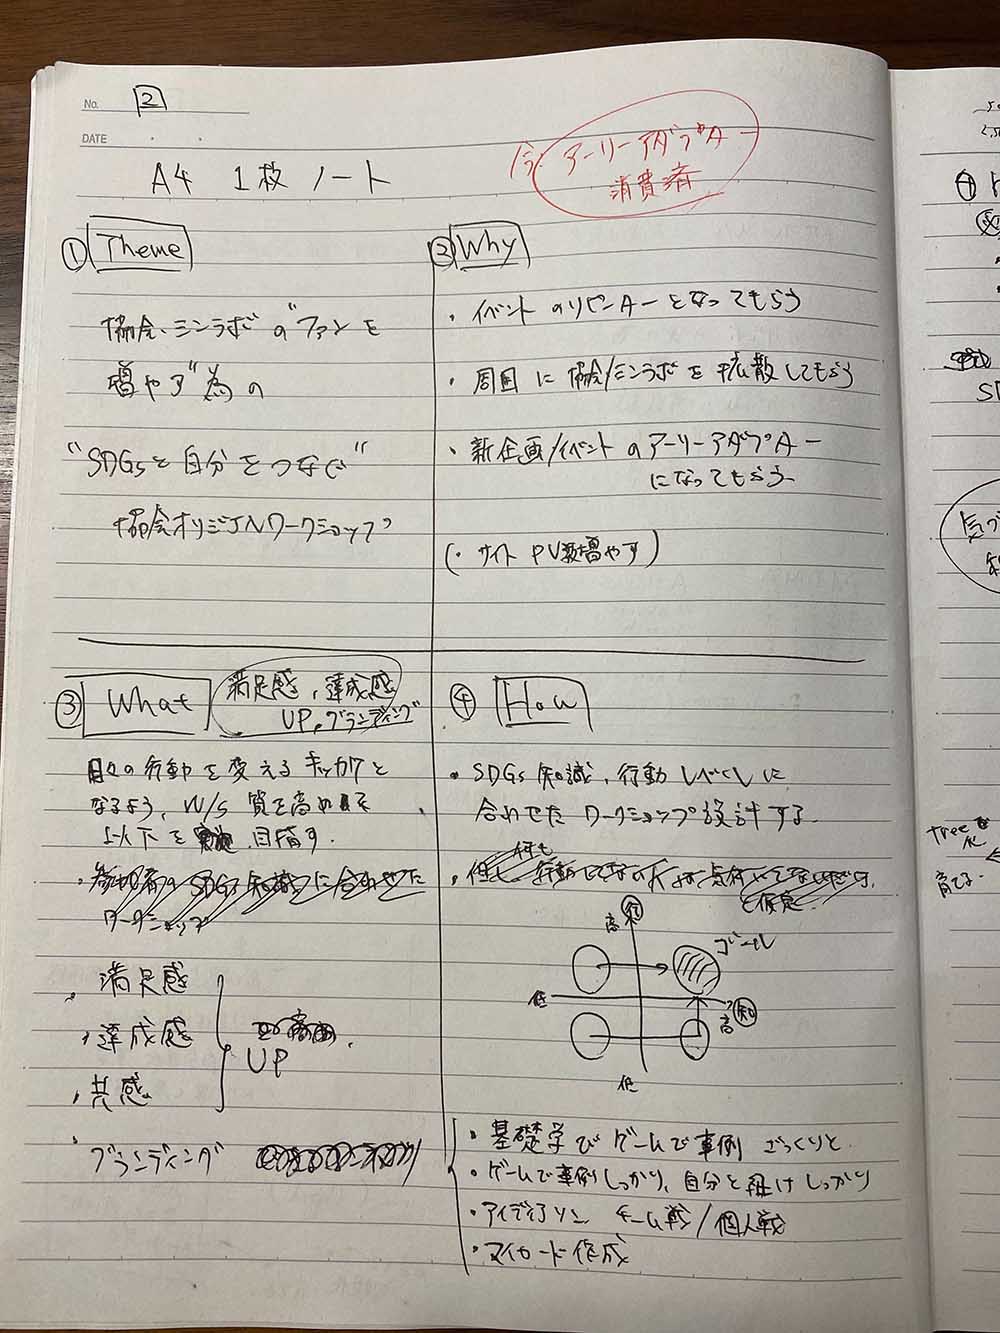 No. 2
DATE
A4 1枚ノート
今: アーリーアダプター
消費済
① Theme
協会・ミンラボの"ファンを
増やす"為の
"SDGsと自分をつなぐ"
協会オリジナルワークショップ
② Why
・イベントのリピーターとなってもらう
・周囲に協会/ミンラボを拡散してもらう
・新企画/イベントのアーリーアダプター
になってもらう
(・サイトPV数増やす)
③ What
満足感、達成感
UP。ブランディング
日々の行動を変えるキッカケと
なるよう、W/S 質を高め
以下を 目指す.
SDGs 知識に合わせた
ワークショップ
・満足感
・達成感
・共感
UP
・ブランディング
④ How
・SDGs知識、行動レベルに
合わせたワークショップ設計する
・但し 何も
と仮定.
高 行
ゴール
低
高 知
低
・基礎学びゲームで事例ざっくりと
・ゲームで事例しっかり、自分と紐付けしっかり
・アイディアソン チーム戦/個人戦
・マイカード作成
SD
気づ
tree を
育てる.